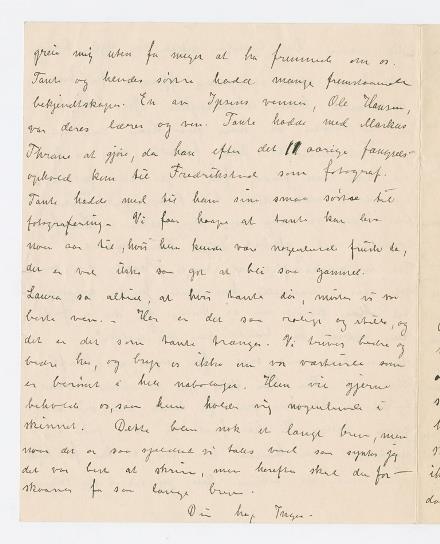 greie mig uten for meget at ha fremmede om os.
Tante og hendes søstre hadde mange fremstaaende
bekjendtskaper. En av Ipsens venner, Ole Hansen,
var deres lærer og ven. Tante hadde med Markus
Thrane at gjøre, da han efter det 11 aarige fængsels-
ophold kom til Fredrikstad som fotograf.
Tante hadde med til ham sine smaa søstre til
fotografering. – Vi faar haape at tante kan leve
noen aar til, hvis hun kunde være nogenlunde frisk da,
det er vel ikke saa got at bli saa gammel.
Laura sa altid, at hvis tante dør, mister vi vor
beste ven. – Her er det saa rolig og stille, og
det er det som tante trænger. Vi trives bedre og
bedre her, og bryr os ikke om vor vertinde som
er berømt i hele nabolaget. Hun vil gjerne
beholde os, saa hun holder sig nogenlunde i
skinnet. Dette blev nok et langt brev, men
naar det er saa sjelden vi tales ved saa syntes jeg
det var best at skrive, men herefter skal du for-
skaanes for saa lange brev.
Din Inga.